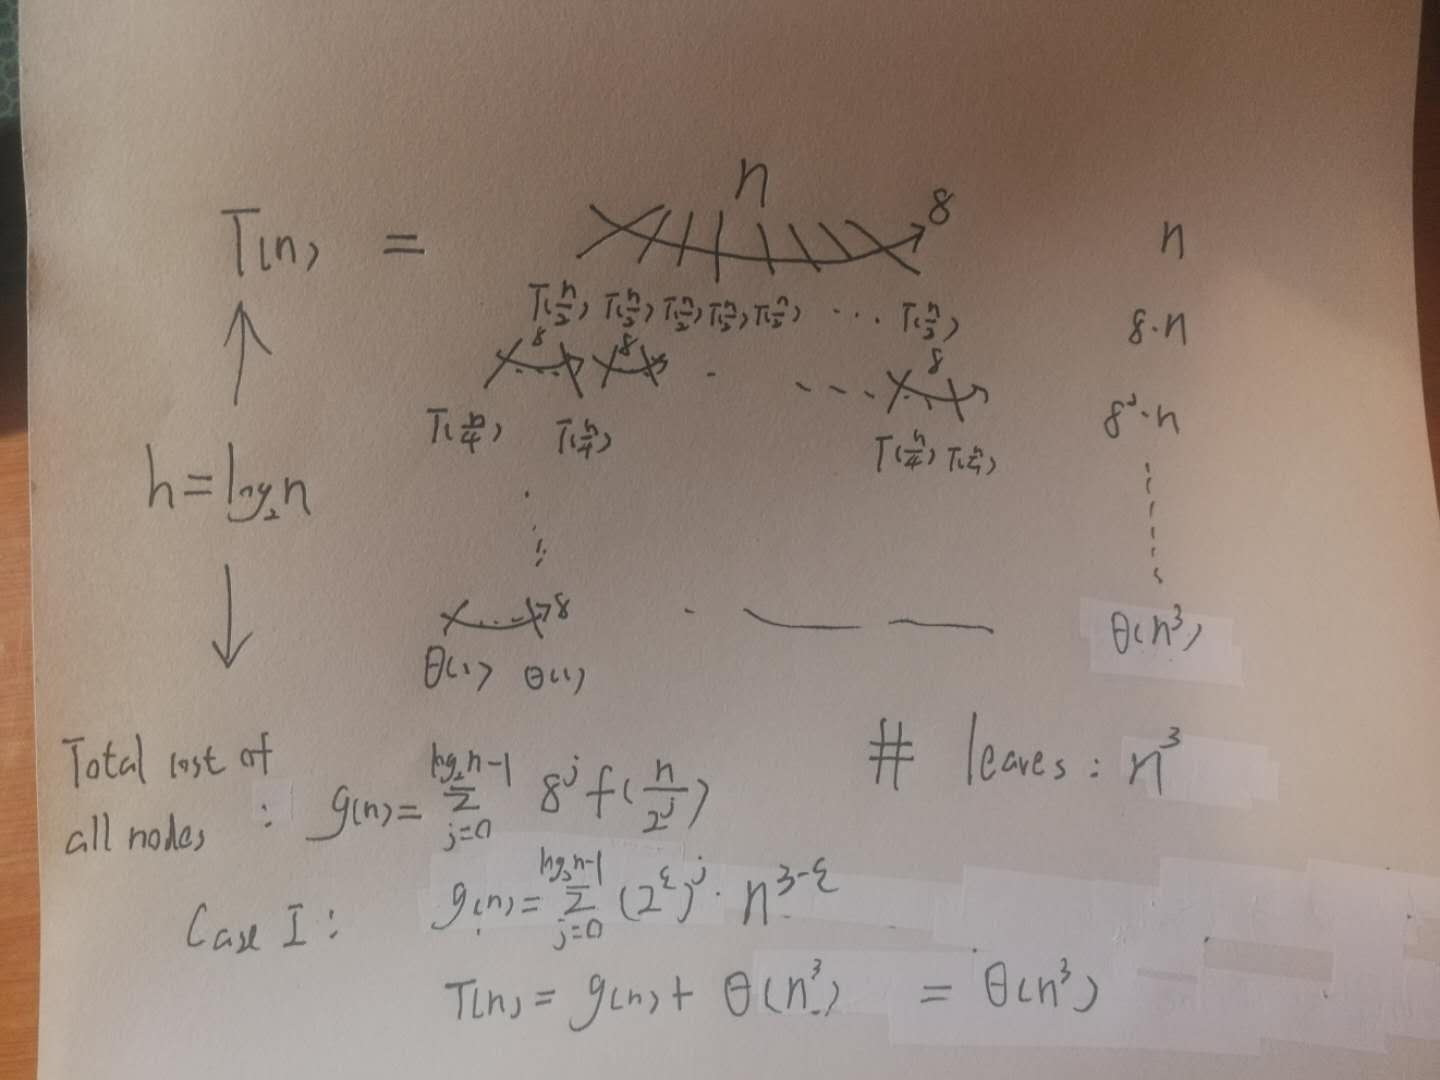 n
T(n) = 8 n
T(n/2) T(n/2) T(n/2) T(n/2) T(n/2) ... T(n/2) 8·n
8 8 8
T(n/4) T(n/4) T(n/4) T(n/4) 8²·n
h=log₂n
8 θ(n³)
θ(1) θ(1)
# leaves: n³
Total cost of
all nodes : g(n)= Σ_{j=0}^{log₂n-1} 8^j f(n/2^j)
Case I: g(n)= Σ_{j=0}^{log₂n-1} (2^ε)^j · n^{3-ε}
T(n)= g(n)+ θ(n³) = θ(n³)